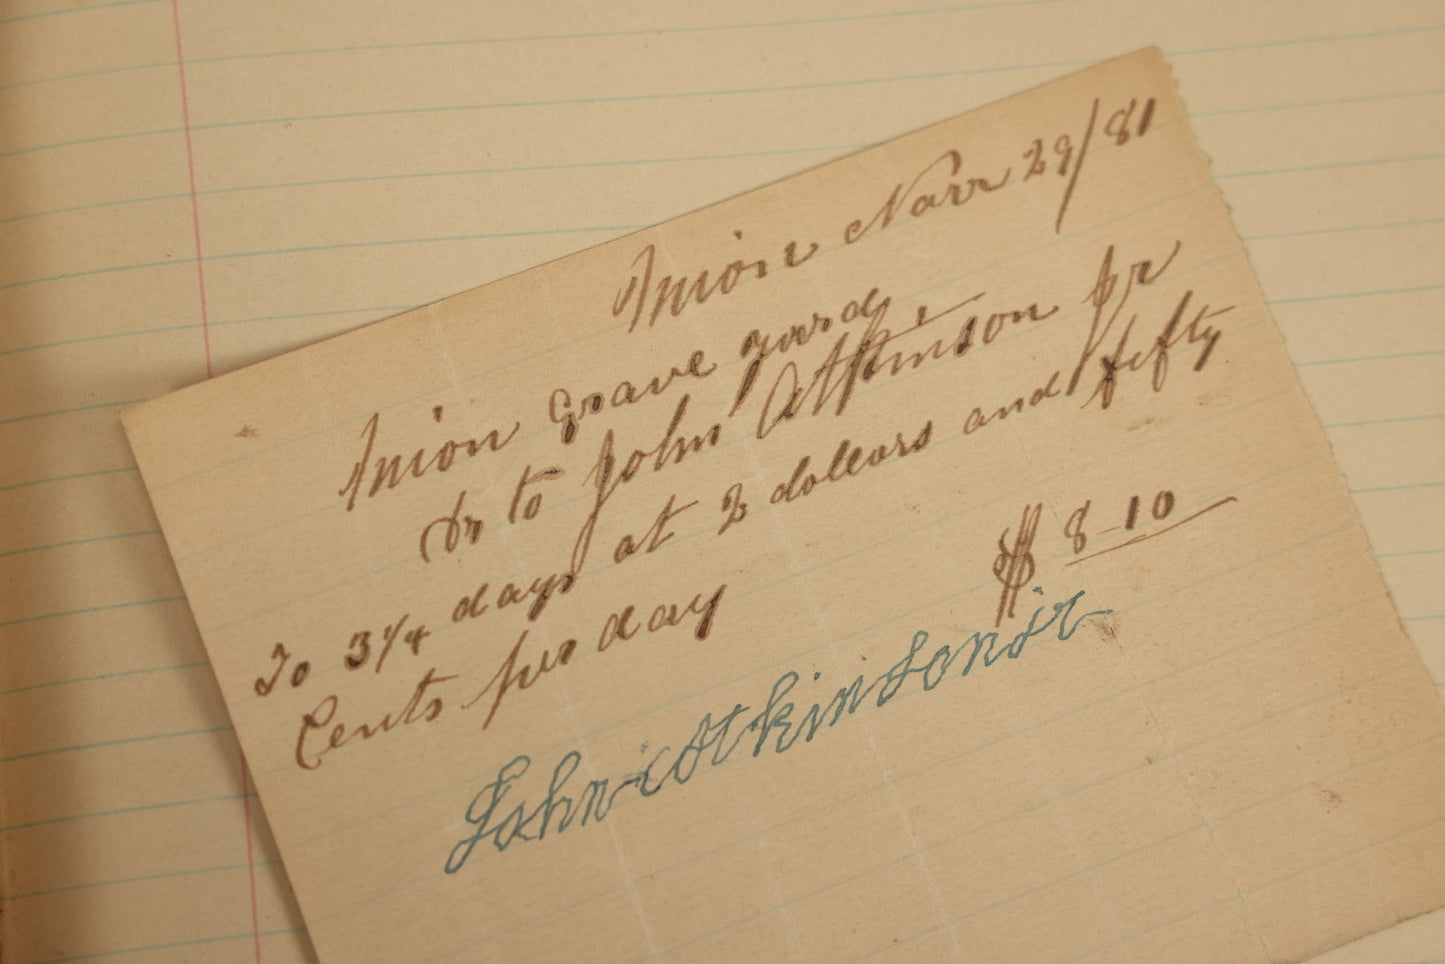 Union Novr 29/81
Union Grave yard,
Dr to John Atkinson Jr
To 3 1/4 days at 2 dollars and fifty
Cents per day
$ 8-10
John Atkinson Jr